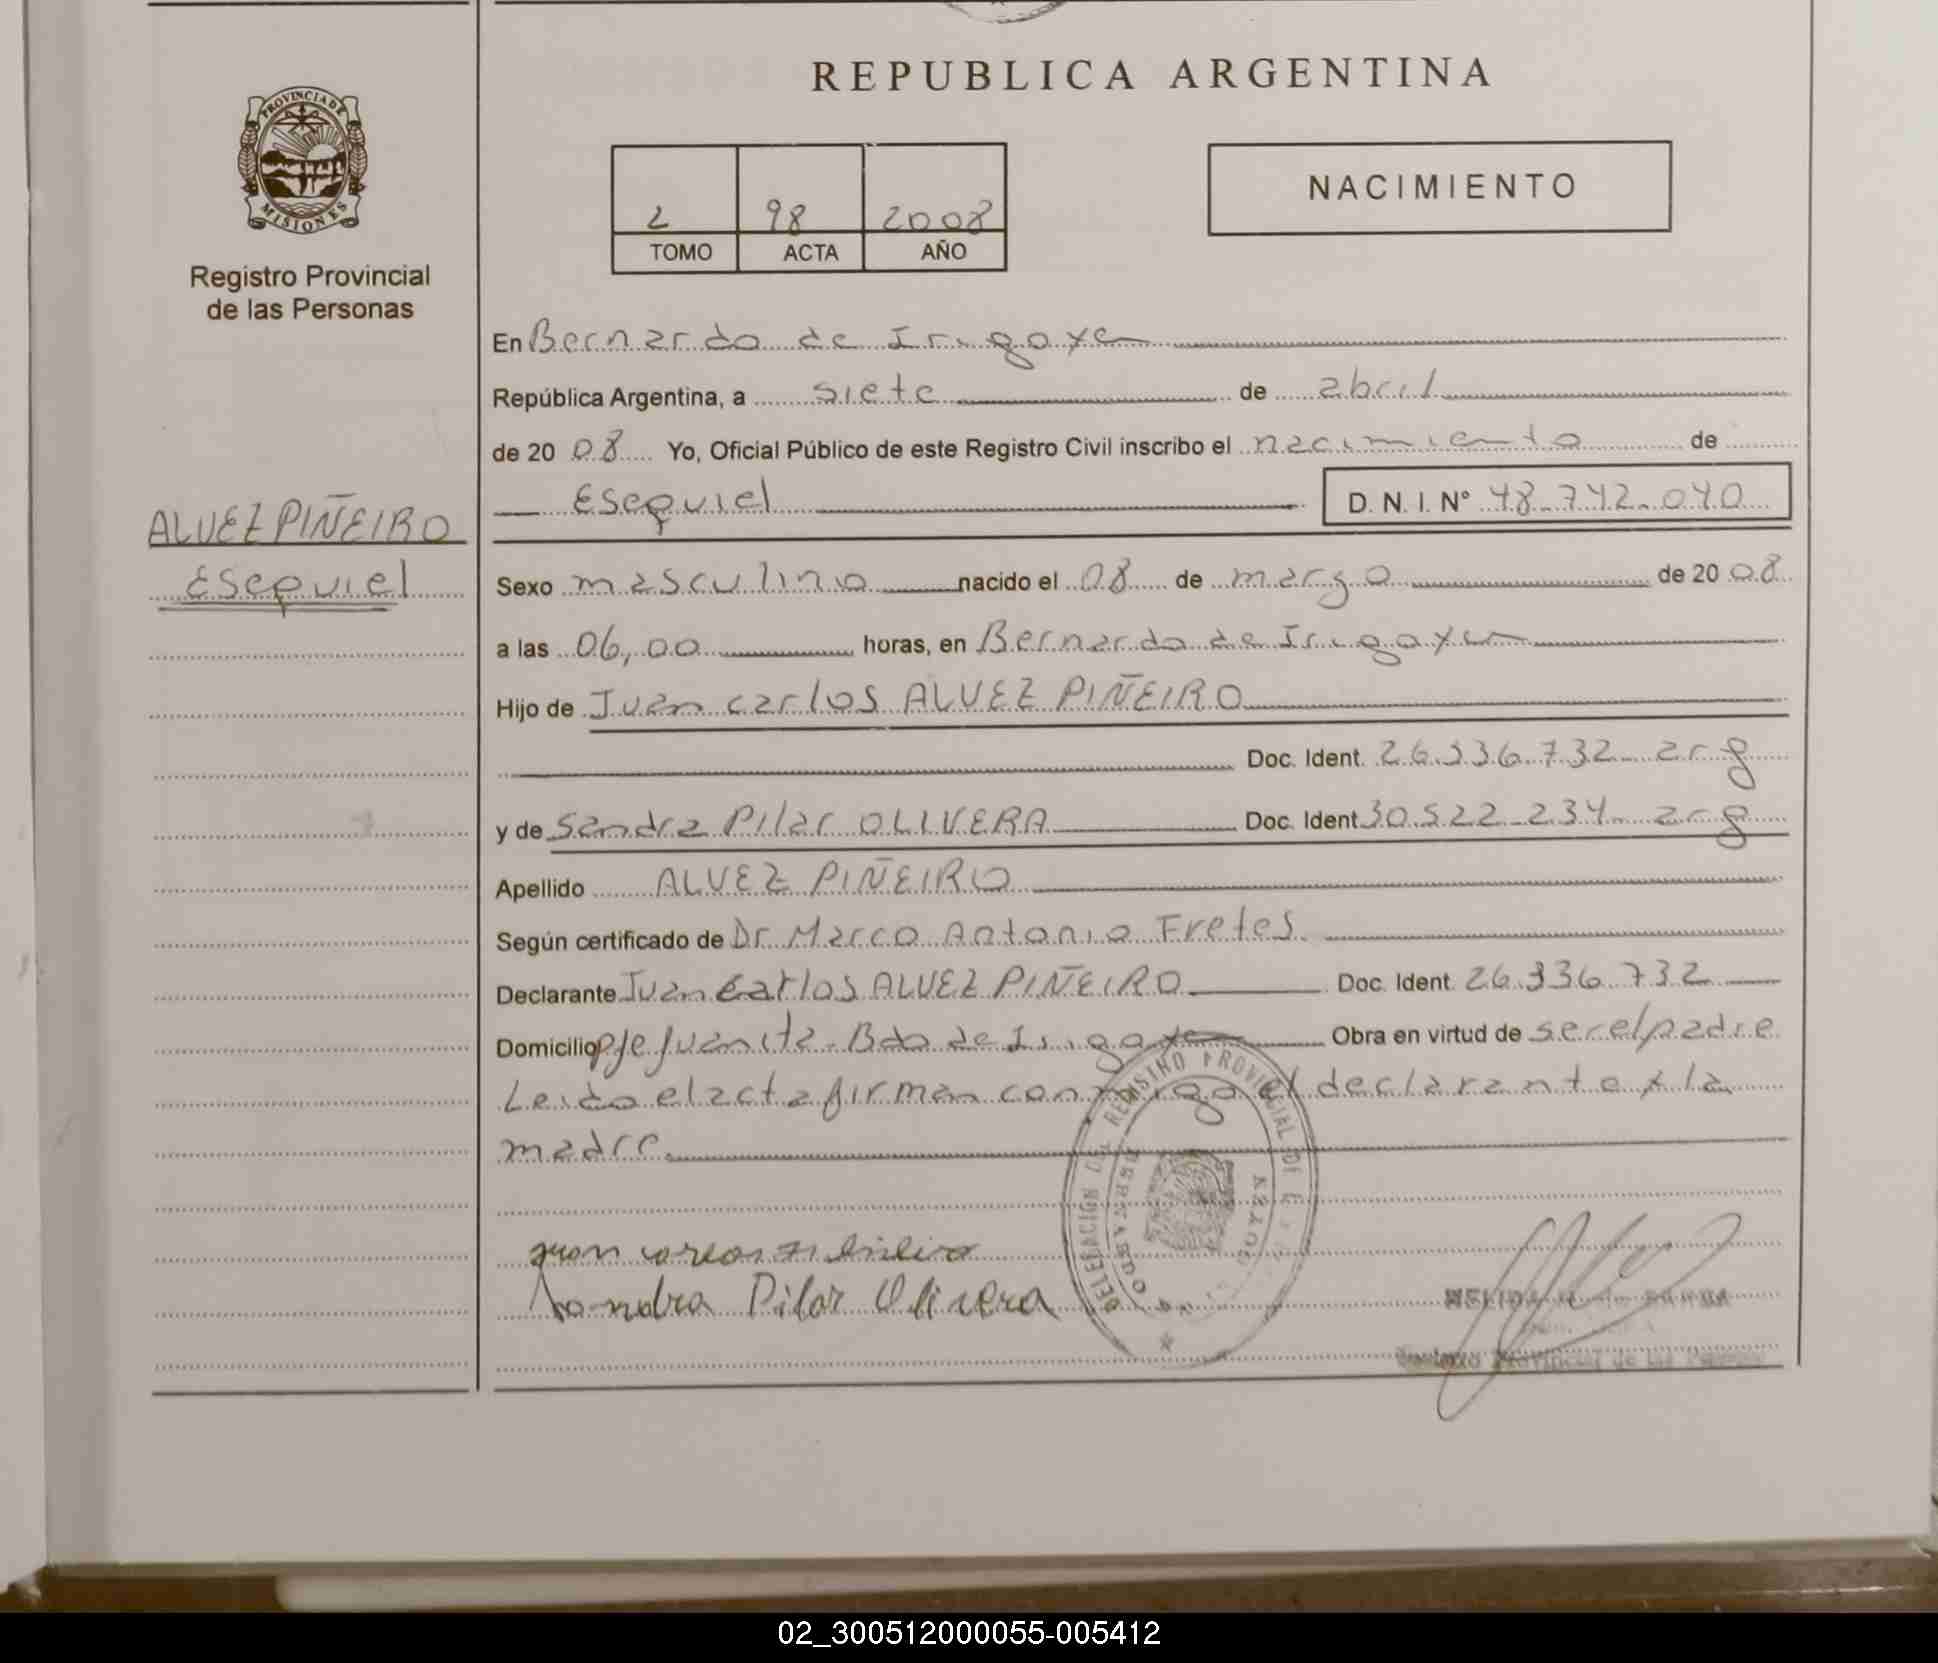 REPUBLICA ARGENTINA
PROVINCIA DE
MISIONES
Registro Provincial
de las Personas
2 98 2008
TOMO ACTA AÑO
NACIMIENTO
En Bernardo de Irigoyen
República Argentina, a siete de abril
de 20 08 Yo, Oficial Público de este Registro Civil inscribo el nacimiento de
Esequiel D. N. I. N° 48-742-040
ALVEZ PIÑEIRO
Esequiel
Sexo masculino nacido el 08 de marzo de 20 08
a las 06,00 horas, en Bernardo de Irigoyen
Hijo de Juan carlos ALVEZ PIÑEIRO
Doc. Ident. 26.336.732 arg
y de Sandra Pilar OLIVERA Doc. Ident 30.522-234 arg
Apellido ALVEZ PIÑEIRO
Según certificado de Dr Marco Antonio Fretes
Declarante Juan Carlos ALVEZ PIÑEIRO Doc. Ident 26.336.732
Domicilio Pje Juanita - Bdo de Irigoyen Obra en virtud de ser el padre
Leido el acta firman conmigo el declarante y la
madre
DELEGACIÓN DEL REGISTRO PROVINCIAL DE
Juan carlos
Sandra Pilar Olivera
Provincial de las Personas
02_300512000055-005412